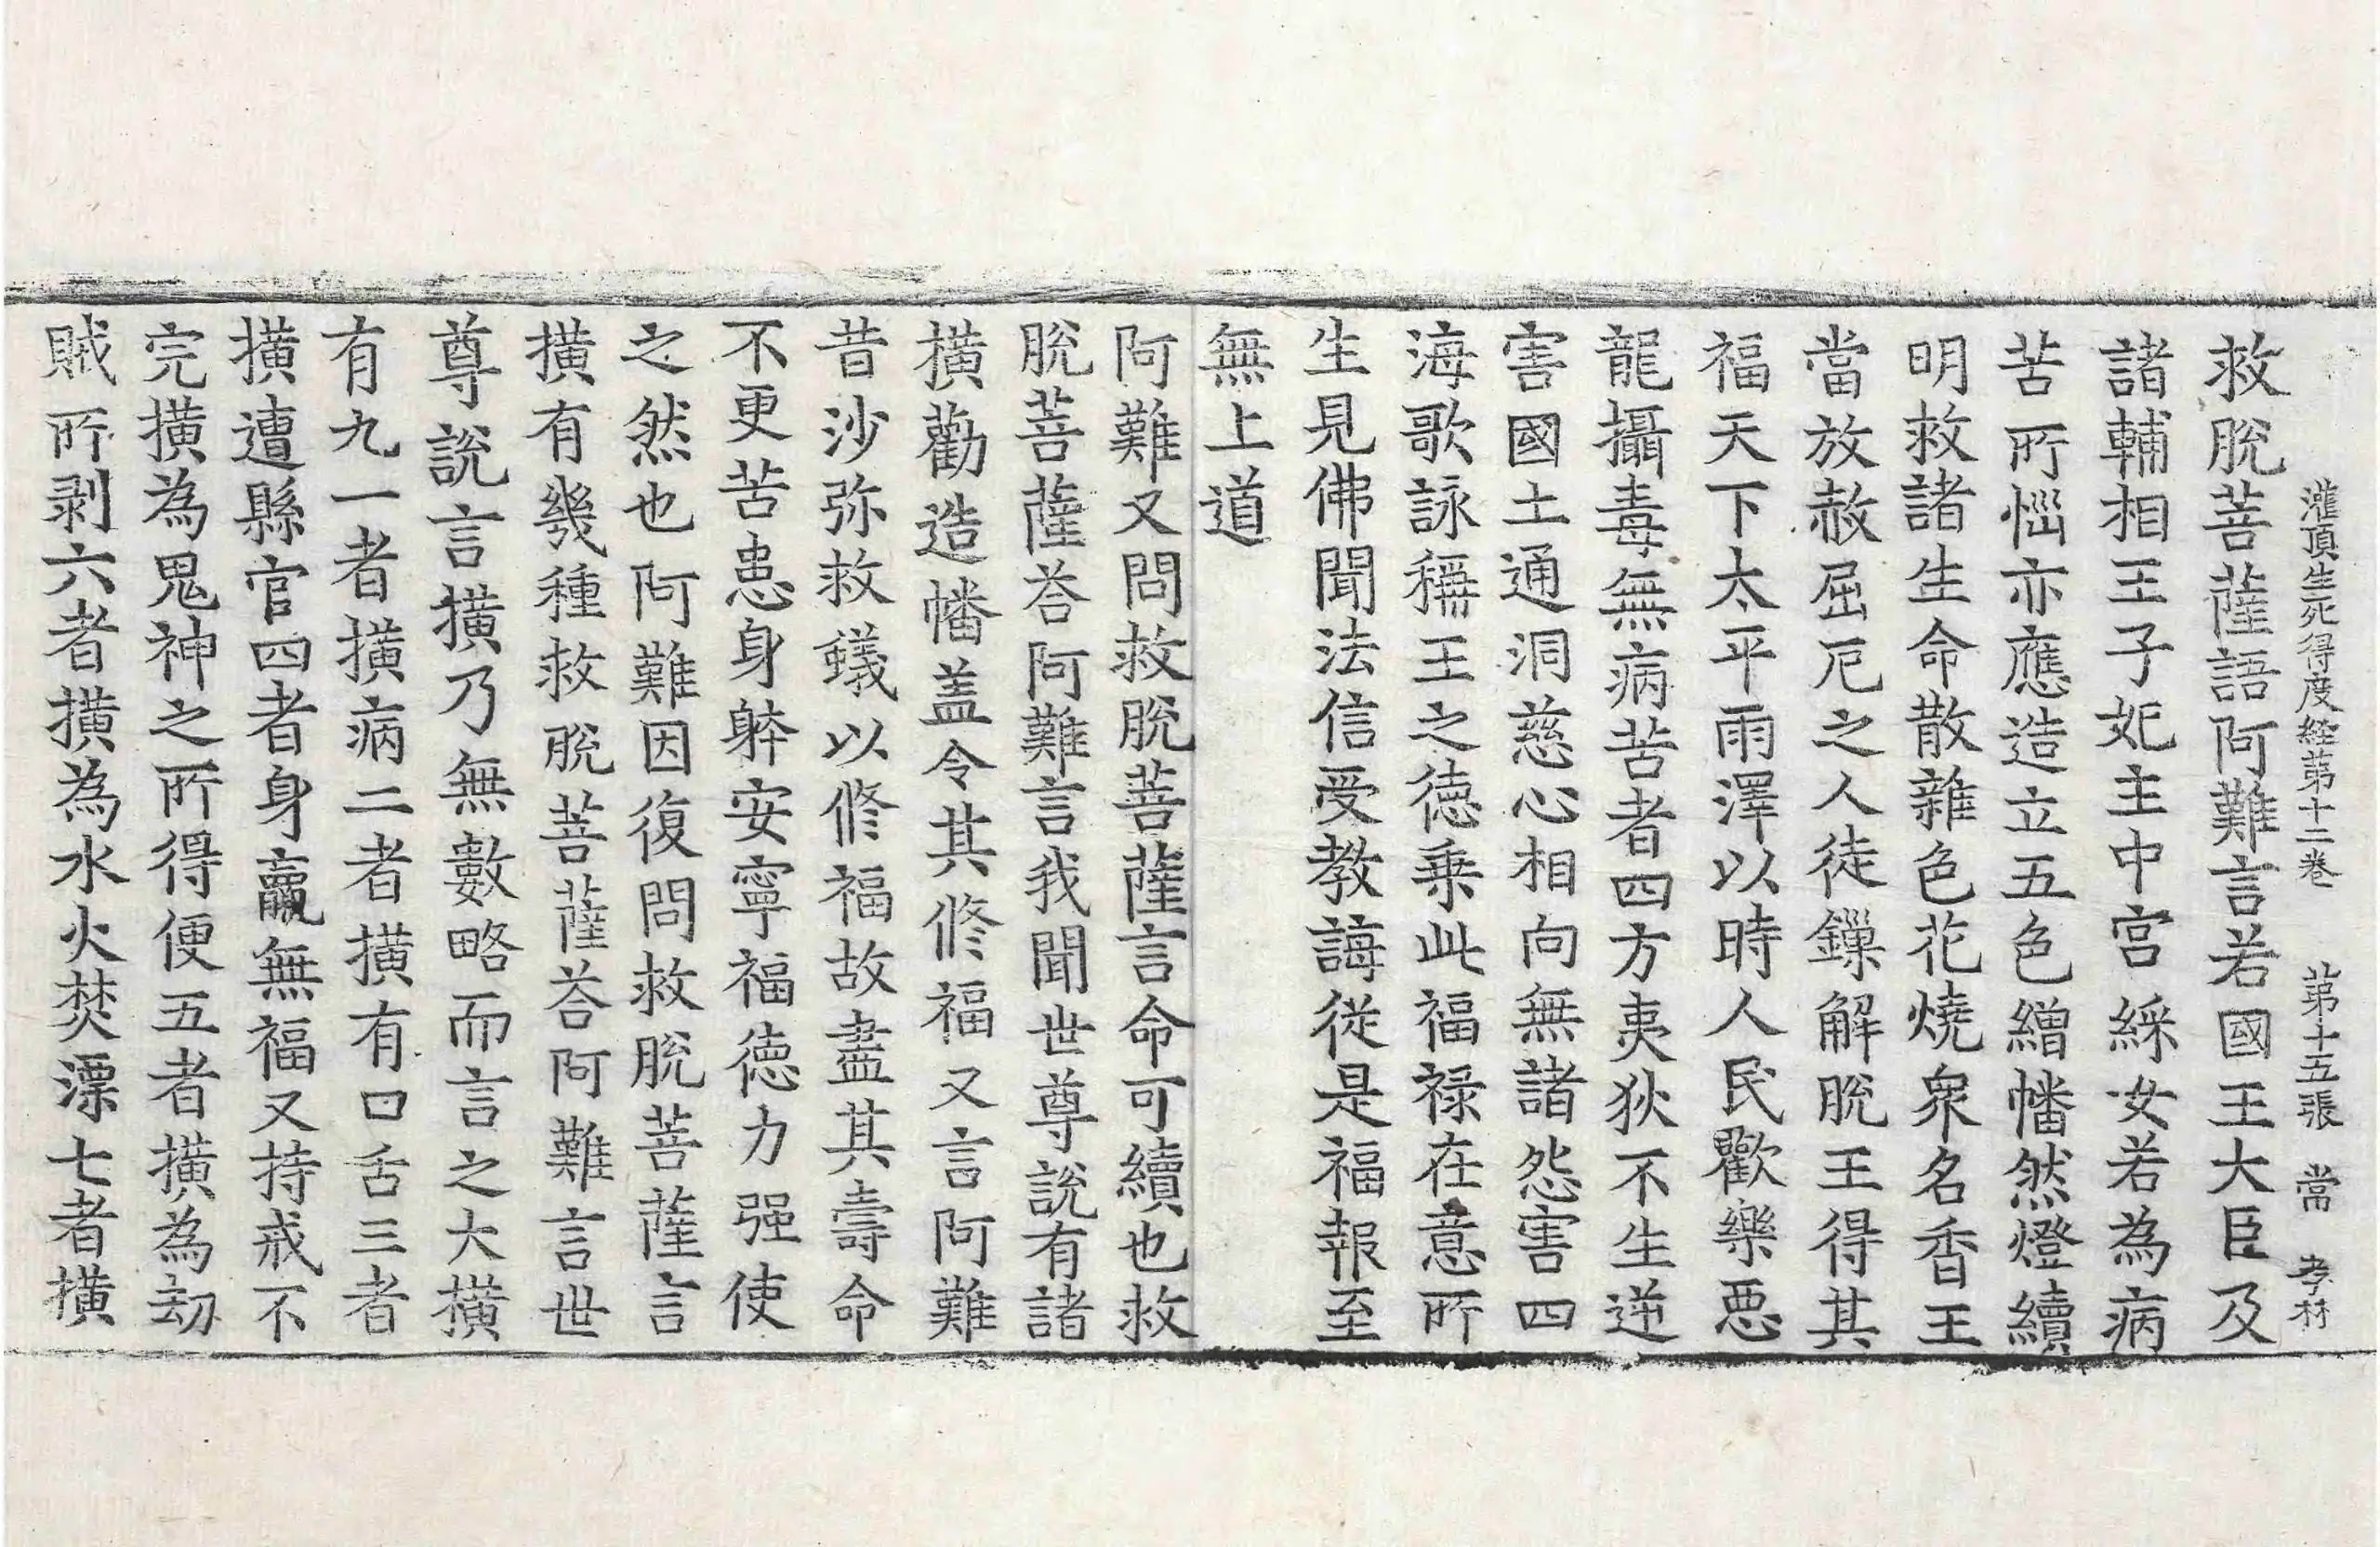 灌頂生死得度経苐十二卷 苐十五張 當 孝林
救脫菩薩語阿難言若國王大臣及
諸輔相王子妃主中宮綵女若為病
苦所惱亦應造立五色繒幡然燈續
明救諸生命散雜色花燒衆名香王
當放赦屈厄之人徒鏁解脫王得其
福天下太平雨澤以時人民歡樂惡
龍攝毒無病苦者四方夷狄不生逆
害國土通洞慈心相向無諸怨害四
海歌詠稱王之德乗此福祿在意所
生見佛聞法信受教誨従是福報至
無上道
阿難又問救脫菩薩言命可續也救
脫菩薩荅阿難言我聞世尊說有諸
撗勸造幡盖令其修福又言阿難
昔沙弥救蟻以修福故盡其壽命
不更苦患身躰安寧福德力强使
之然也阿難因復問救脫菩薩言
撗有幾種救脫菩薩荅阿難言世
尊說言撗乃無數略而言之大撗
有九一者撗病二者撗有口舌三者
撗遭縣官四者身羸無福又持戒不
完撗為鬼神之所得便五者撗為劫
賊所剥六者撗為水火焚漂七者撗